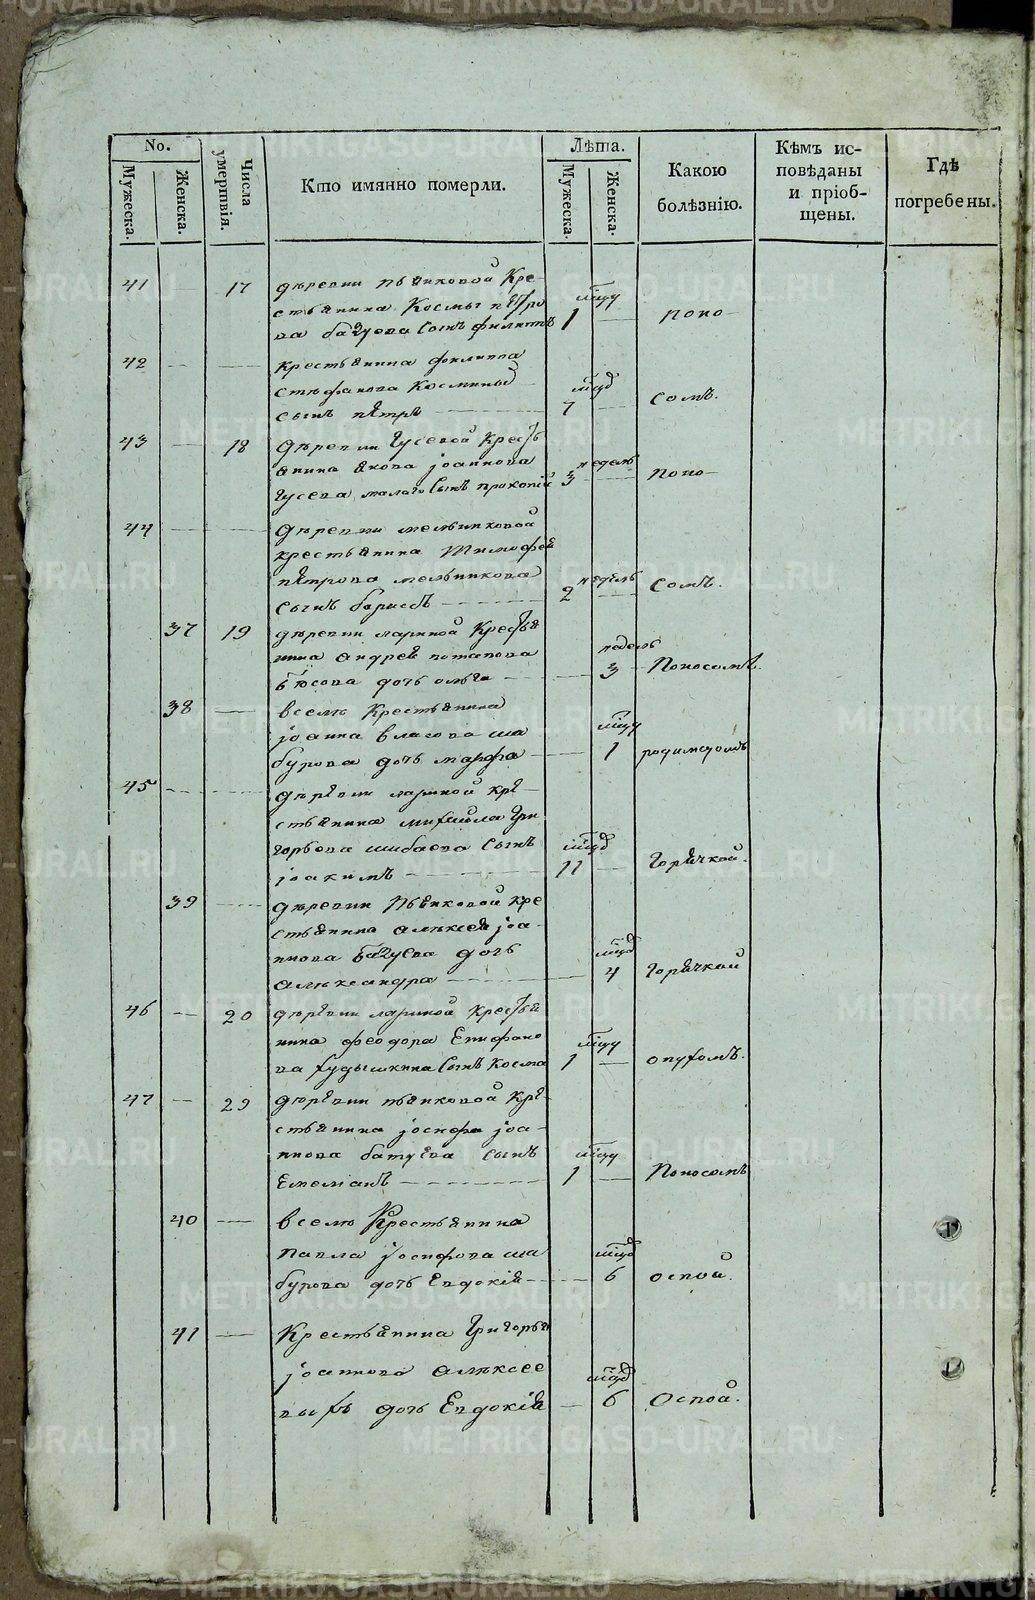 No.
Мужеска.
Женска.
Числа умертвія.
Кто имянно померли.
Лѣта.
Мужеска.
Женска.
Какою болѣзнію.
Кѣмъ исповѣданы и пріобщены.
Гдѣ погребены.
41 17 деревни пьянковой Кре
стьянина Космы петро мцу
ва батуева сынъ филиппъ 1 поно
42 крестьянина филиппа
стефанова Косминых мцд
сынъ петръ 7 сомъ.
43 18 деревни гусевой Кресть
янина якова јоаннова недель
гусева малаго сынъ прокопій 3 поно
44 деревни мельниковой
крестьянина тимофея
петрова мельникова недель
сынъ борисъ 2 сомъ.
37 19 деревни лариной Крестья
нина андрея потапова недель
дочь ольга 3 Поносомъ.
38 в селе Крестьянина
јоанна власова ша мцу
бурова дочь марфа 1 родимцомъ
45 деревни лариной кре
стьянина михаила гри
горьева шибаева сынъ мцд
јоакимъ 11 горячкой.
39 деревни Пьянковой кре
стьянина алексея јоа
ннова батуева дочь мцд
александра 4 горячкой
46 20 деревни лариной крестья
нина феодора Епифано мцу
ва худышкина сынъ косма 1 опухомъ.
47 29 деревни пьянковой Кре
стьянина јосифа јоа
ннова батуева сынъ мцу
Емеліанъ 1 Поносомъ
40 в селе Крестьянина
павла јосифова ша мцд
бурова дочь Евдокія 6 оспой.
41 Крестьянина григорья
јоаннова алексее мцд
выхъ дочь Евдокія 6 Оспой.
METRIKI.GASO-URAL.RU